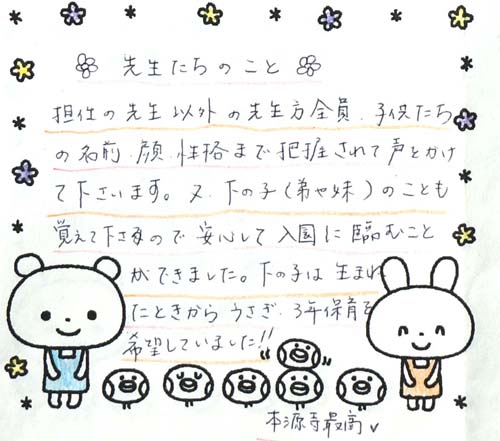 先生たちのこと
担任の先生以外の先生方全員、子供たち
の名前、顔、性格まで把握されて声をかけ
て下さいます。又、下の子(弟や妹)のことも
覚えて下さるので安心して入園に臨むこと
ができました。下の子は生まれ
たときから うさぎ、3年保育を
希望していました!!
本源寺最高